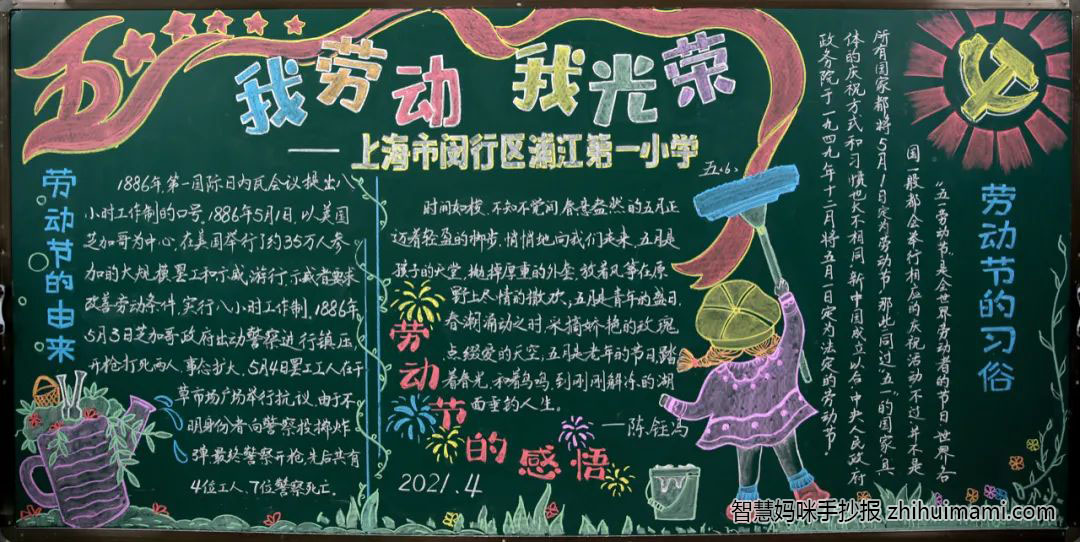 五一
我劳动 我光荣
——上海市闵行区浦江第一小学
五<6>
劳动节的由来
1886年,第一国际日内瓦会议提出八
小时工作制的口号.1886年5月1日,以美国
芝加哥为中心,在美国举行了约35万人参
加的大规模罢工和示威游行,示威者要求
改善劳动条件,实行八小时工作制.1886年
5月3日芝加哥政府出动警察进行镇压
开枪打死两人,事态扩大,5月4日罢工工人在干
草市场广场举行抗议,由于不
明身份者向警察投掷炸
弹,最终警察开枪,先后共有
4位工人,7位警察死亡.
时间如梭,不知不觉间,春意盎然的五月正
迈着轻盈的脚步,悄悄地向我们走来,五月是
孩子的天堂,抛掉厚重的外套,放着风筝在原
野上尽情的撒欢,五月是青年的盛日,
春潮涌动之时,采摘娇艳的玫瑰
点缀爱的天空,五月是老年的节日,踏
着春光,和着鸟鸣,到刚刚解冻的湖
面垂钓人生。
——陈钰冯
劳动节的感悟
2021.4
劳动节的习俗
"五一劳动节"是全世界劳动者的节日,世界上各
国一般都会举行相应的庆祝活动,不过,并不是
所有国家都将5月1日定为劳动节,那些同过"五一"的国家,具
体的庆祝方式和习惯也大不相同,新中国成立以后,中央人民政府
政务院于一九四九年十二月将五月一日定为法定的劳动节.
智慧妈咪手抄报 zhihuimami.com